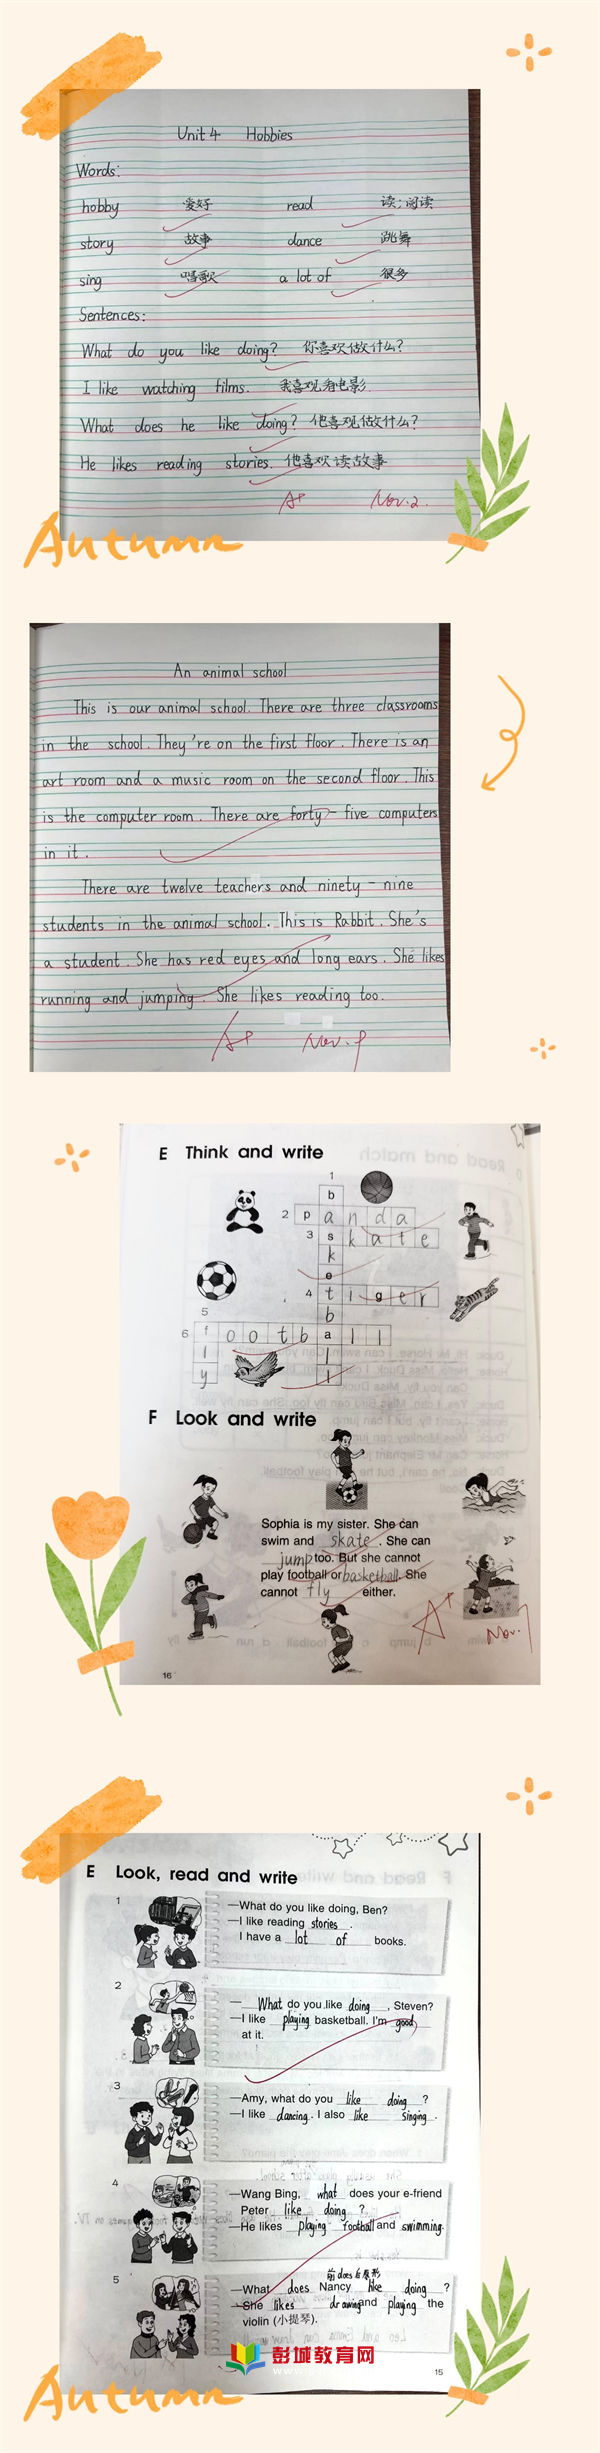 Unit 4 Hobbies
Words:
hobby 爱好 read 读;阅读
story 故事 dance 跳舞
sing 唱歌 a lot of 很多
Sentences:
What do you like doing? 你喜欢做什么?
I like watching films. 我喜观看电影.
What does he like doing? 他喜观做什么?
He likes reading stories. 他喜欢读故事
A+ Nov.2.
Autumn
An animal school
This is our animal school. There are three classrooms
in the school. They're on the first floor. There is an
art room and a music room on the second floor. This
is the computer room. There are forty-five computers
in it.
There are twelve teachers and ninety-nine
students in the animal school. This is Rabbit. She's
a student. She has red eyes and long ears. She likes
running and jumping. She likes reading too.
A+ Nov.9
E Think and write
1
b
2 panda
3 skate
k
e
4 tiger
b
5
6 football
l l
y l
F Look and write
Sophia is my sister. She can
swim and skate. She can
jump too. But she cannot
play football or basketball. She
cannot fly either.
A+ Nov.7
16
E Look, read and write
1
—What do you like doing, Ben?
—I like reading stories.
I have a lot of books.
2
—What do you like doing, Steven?
—I like playing basketball. I'm good
at it.
3
—Amy, what do you like doing?
—I like dancing. I also like singing.
4
—Wang Bing, what does your e-friend
Peter like doing?
—He likes playing football and swimming.
5
前does后原形
—What does Nancy like doing?
—She likes drawing and playing the
violin (小提琴).
彭城教育网
15
Autumn